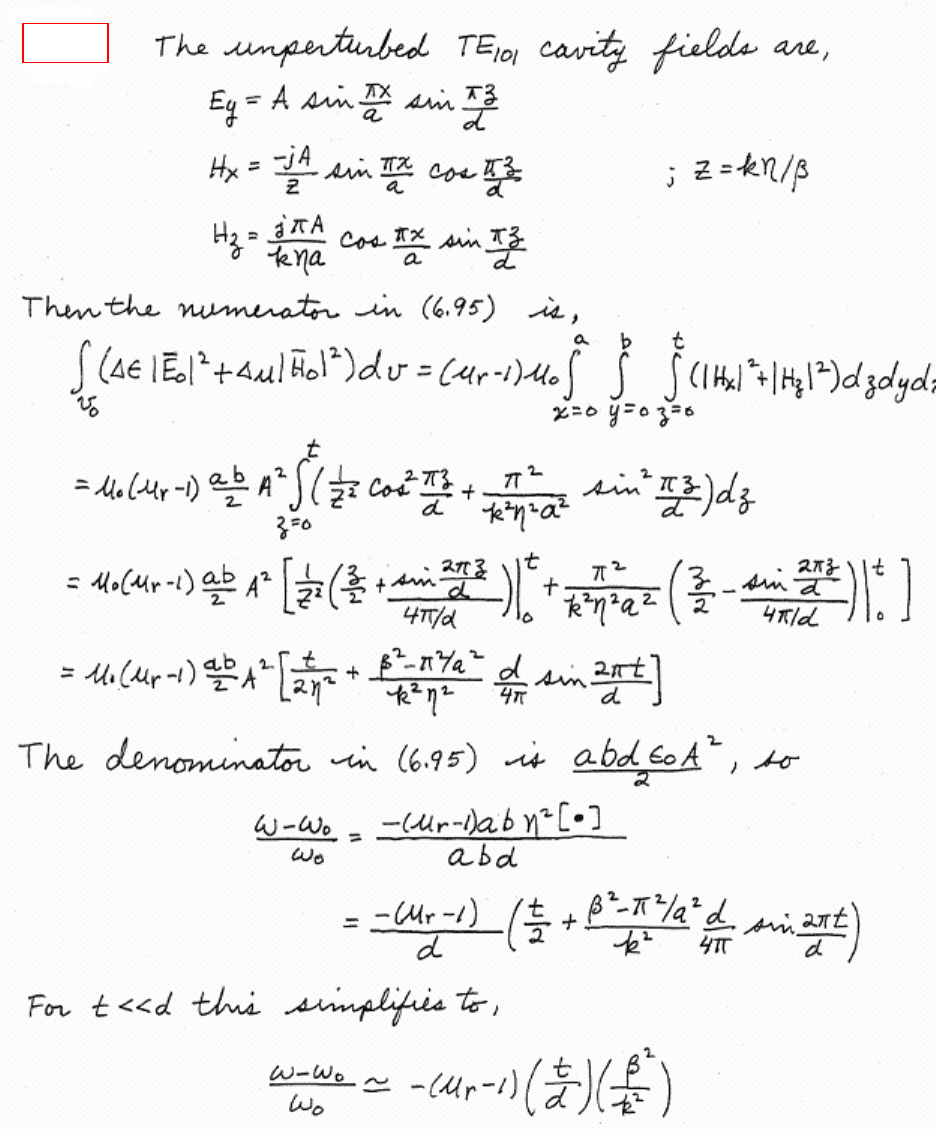 The unperturbed TE₁₀₁ cavity fields are,
Ey = A sin πx/a sin πz/d
Hx = -jA/Z sin πx/a cos πz/d ; Z = kη/β
Hz = jπA/kηa cos πx/a sin πz/d
Then the numerator in (6.95) is,
∫_{v₀} (Δϵ|Ē₀|² + Δμ|H̄₀|²)dv = (μr-1)μ₀ ∫_{x=0}^{a} ∫_{y=0}^{b} ∫_{z=0}^{t} (|Hx|² + |Hz|²)dzdydz
= μ₀(μr-1) ab/2 A² ∫_{z=0}^{t} (1/Z² cos² πz/d + π²/k²η²a² sin² πz/d)dz
= μ₀(μr-1) ab/2 A² [1/Z² (z/2 + sin 2πz/d / 4π/d)|₀ᵗ + π²/k²η²a² (z/2 - sin 2πz/d / 4π/d)|₀ᵗ]
= μ₀(μr-1) ab/2 A² [t/2η² + β²-π²/a² / k²η² d/4π sin 2πt/d]
The denominator in (6.95) is abdϵ₀A²/2, so
ω-ω₀/ω₀ = -(μr-1)abη²[•]/abd
= -(μr-1)/d (t/2 + β²-π²/a² / k² d/4π sin 2πt/d)
For t<<d this simplifies to,
ω-ω₀/ω₀ ≃ -(μr-1)(t/d)(β²/k²)